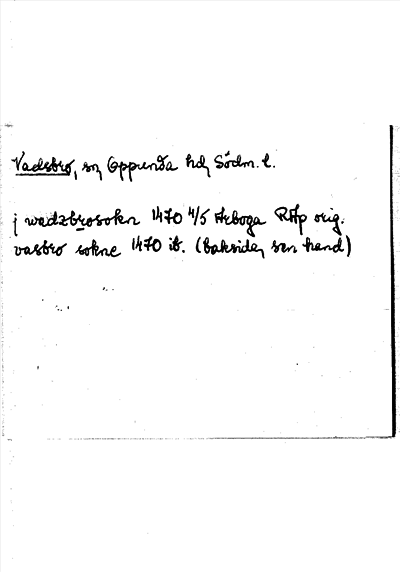 Vadsbro, sn Oppunda hd, Södm. l.
j wadzbrosokn 1470 4/5 Arboga RAp orig.
vasbro sokne 1470 ib. (baksidan, sen hand)